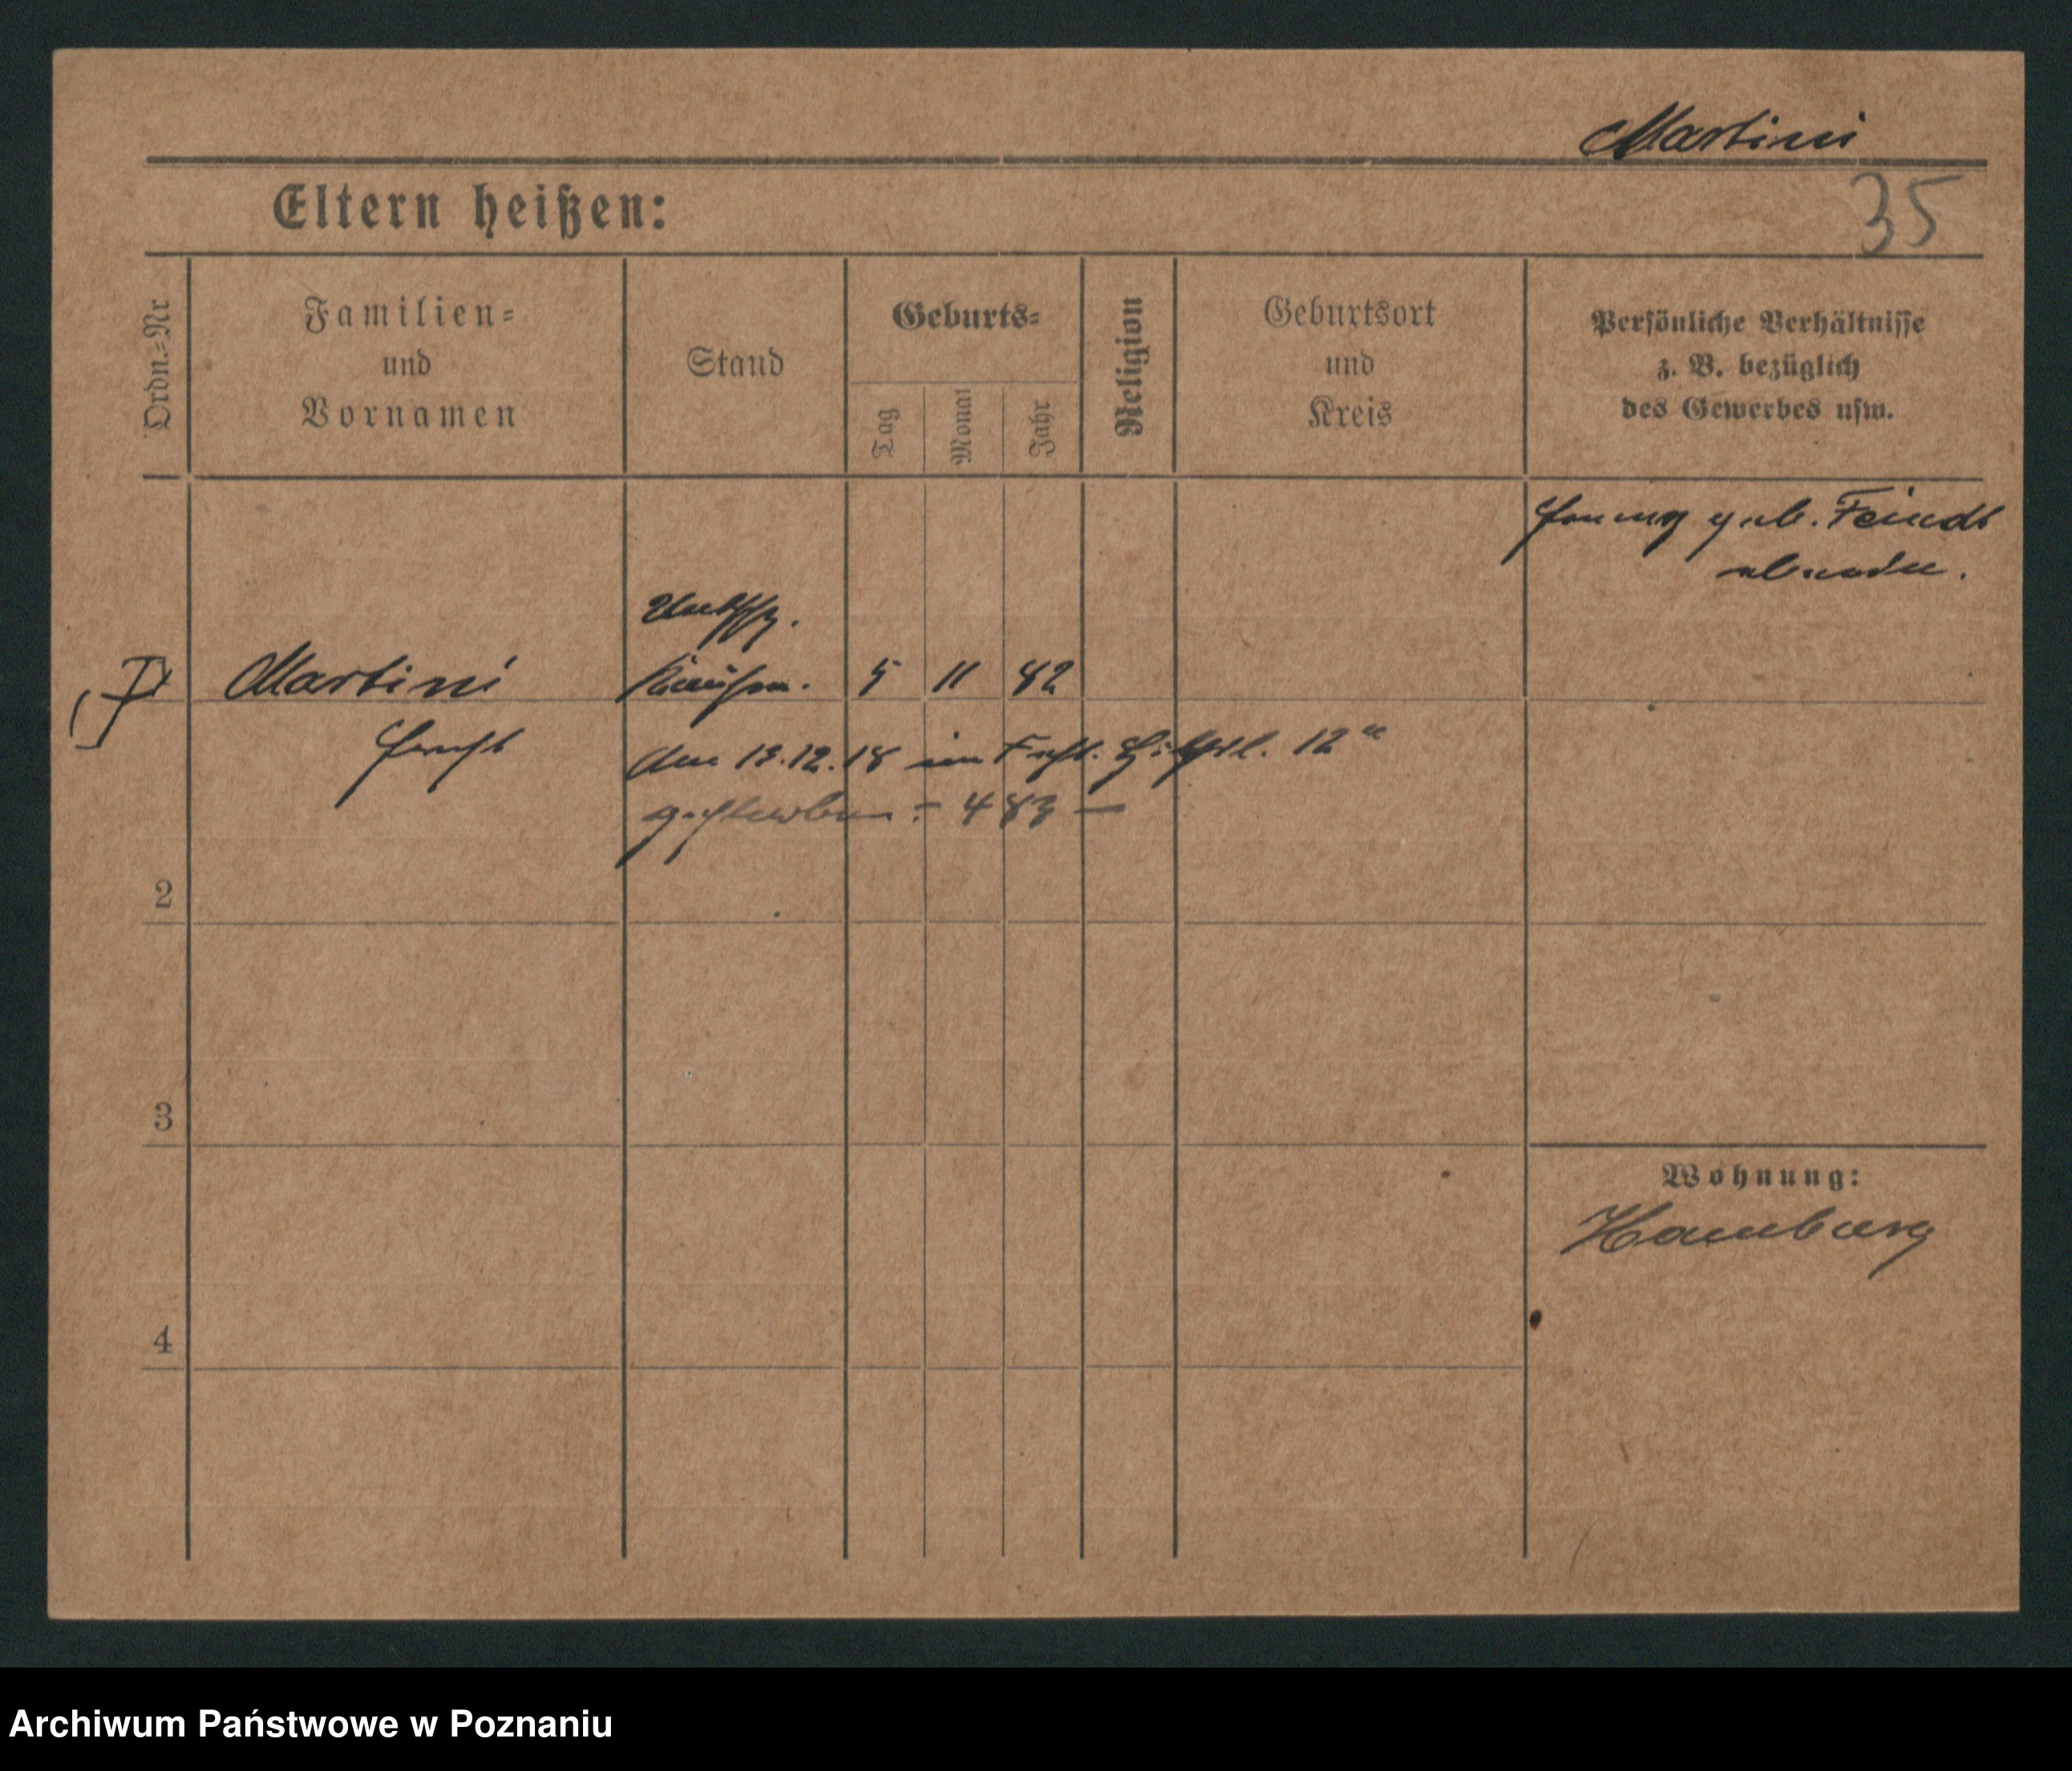 Martini
Eltern heißen:
35
Ordn.-Nr
Familien-
und
Vornamen
Stand
Geburts-
Tag
Monat
Jahr
Religion
Geburtsort
und
Kreis
Persönliche Verhältnisse
z. B. bezüglich
des Gewerbes usw.
geb. Feindt
Martini
5 11 82
den 13.12.18 im Fest. 12"
gestorben - 483 -
2
3
4
Wohnung:
Hamburg
Archiwum Państwowe w Poznaniu